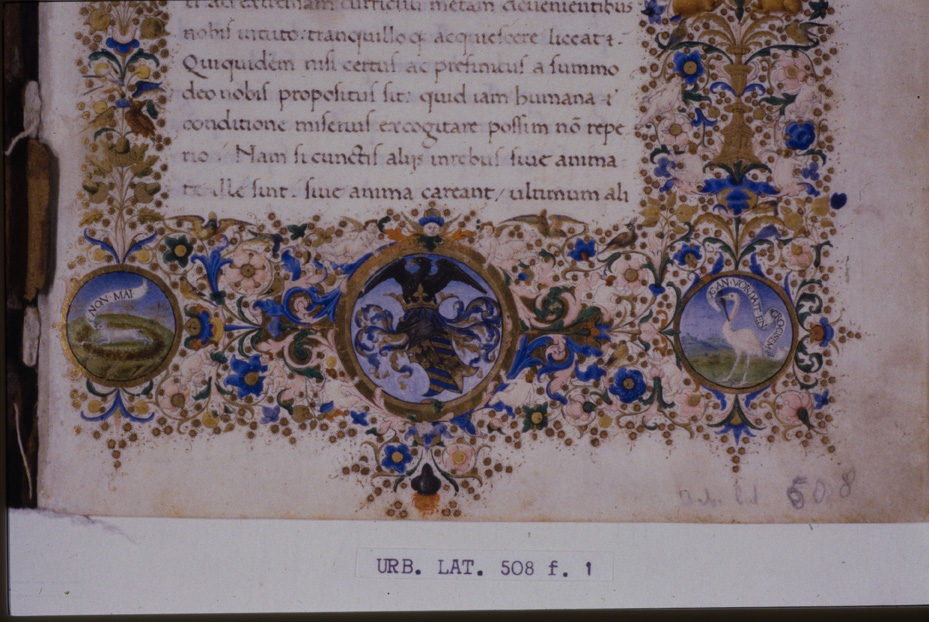 nobis in tuto: tranquillo & acquiescere liceat.
Qui quidem nisi certus ac prefinitus a summo
deo nobis propositus sit: quid iam humana
conditione miserius excogitare possim nō repe
rio. Nam si cunctis aliis in rebus sive anima
sint. sive anima careant, ultimum ali
NON MAI
URB. LAT. 508 f. 1